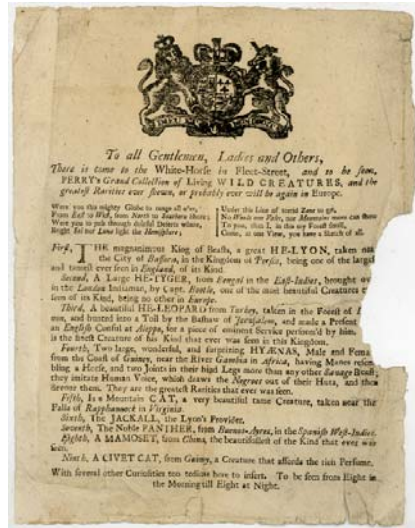 To all Gentlemen, Ladies and Others,
There is come to the White-Horse in Fleet-Street, and to be seen,
PERRY's Grand Collection of Living WILD CREATURES, and the
greatest Rarities ever shewn, or probably ever will be again in Europe.
Were you this mighty Globe to range all o'er,
From East to West, from North to Southern shore;
Were you to pass through doleful Desarts where,
Bright Sol nor Luna light the Hemisphere;
Under this Line of torrid Zone to go,
No Winds nor Vales, nor Mountains more can show
To you, than I, in this my Forest small,
Come, at one View, you have a Sketch of all.
First, THE magnanimous King of Beasts, a great HE-LYON, taken
the City of Bassora, in the Kingdom of Persia, being one of the largest
and tamest ever seen in England, of its Kind.
Second, A Large HE-TYGER, from Bengal in the East-Indies, brought
in the London Indiaman, by Capt. one of the most beautiful Creatures
seen of its Kind, being no other in Europe.
Third, A beautiful HE-LEOPARD from Turkey, taken in the Forest of
and hunted into a Toil by the Bashaw of Jerusalem, and made a Present
an English Consul at Aleppo, for a piece of eminent Service perform'd by him.
is the finest Creature of his Kind that ever was seen in this Kingdom.
Fourth, Two large, wonderful, and surprising HYÆNAS, Male and
from the Coast of Guiney, near the River Gambia in Africa, having Manes
bling a Horse, and two Joints in their hind Legs more than any other Savage Beast;
they imitate Humane Voice, which draws the Negroes out of their Huts, and
devour them. They are the greatest Rarities that ever was seen.
Fifth, Is a Mountain CAT, a very beautiful tame Creature, taken near the
Falls of Rapphannock in Virginia.
Sixth, The JACKALL, the Lyon's Provider.
Seventh, The Noble PANTHER, from Buenos-Ayres, in the Spanish West-Indies.
Eighth, A MAMOSET, from China, the beautifullest of the Kind that ever was
seen.
Ninth, A CIVET CAT, from Guiney, a Creature that affords the rich Perfume.
With several other Curiosities too tedious here to insert. To be seen from Eight in
the Morning till Eight at Night.